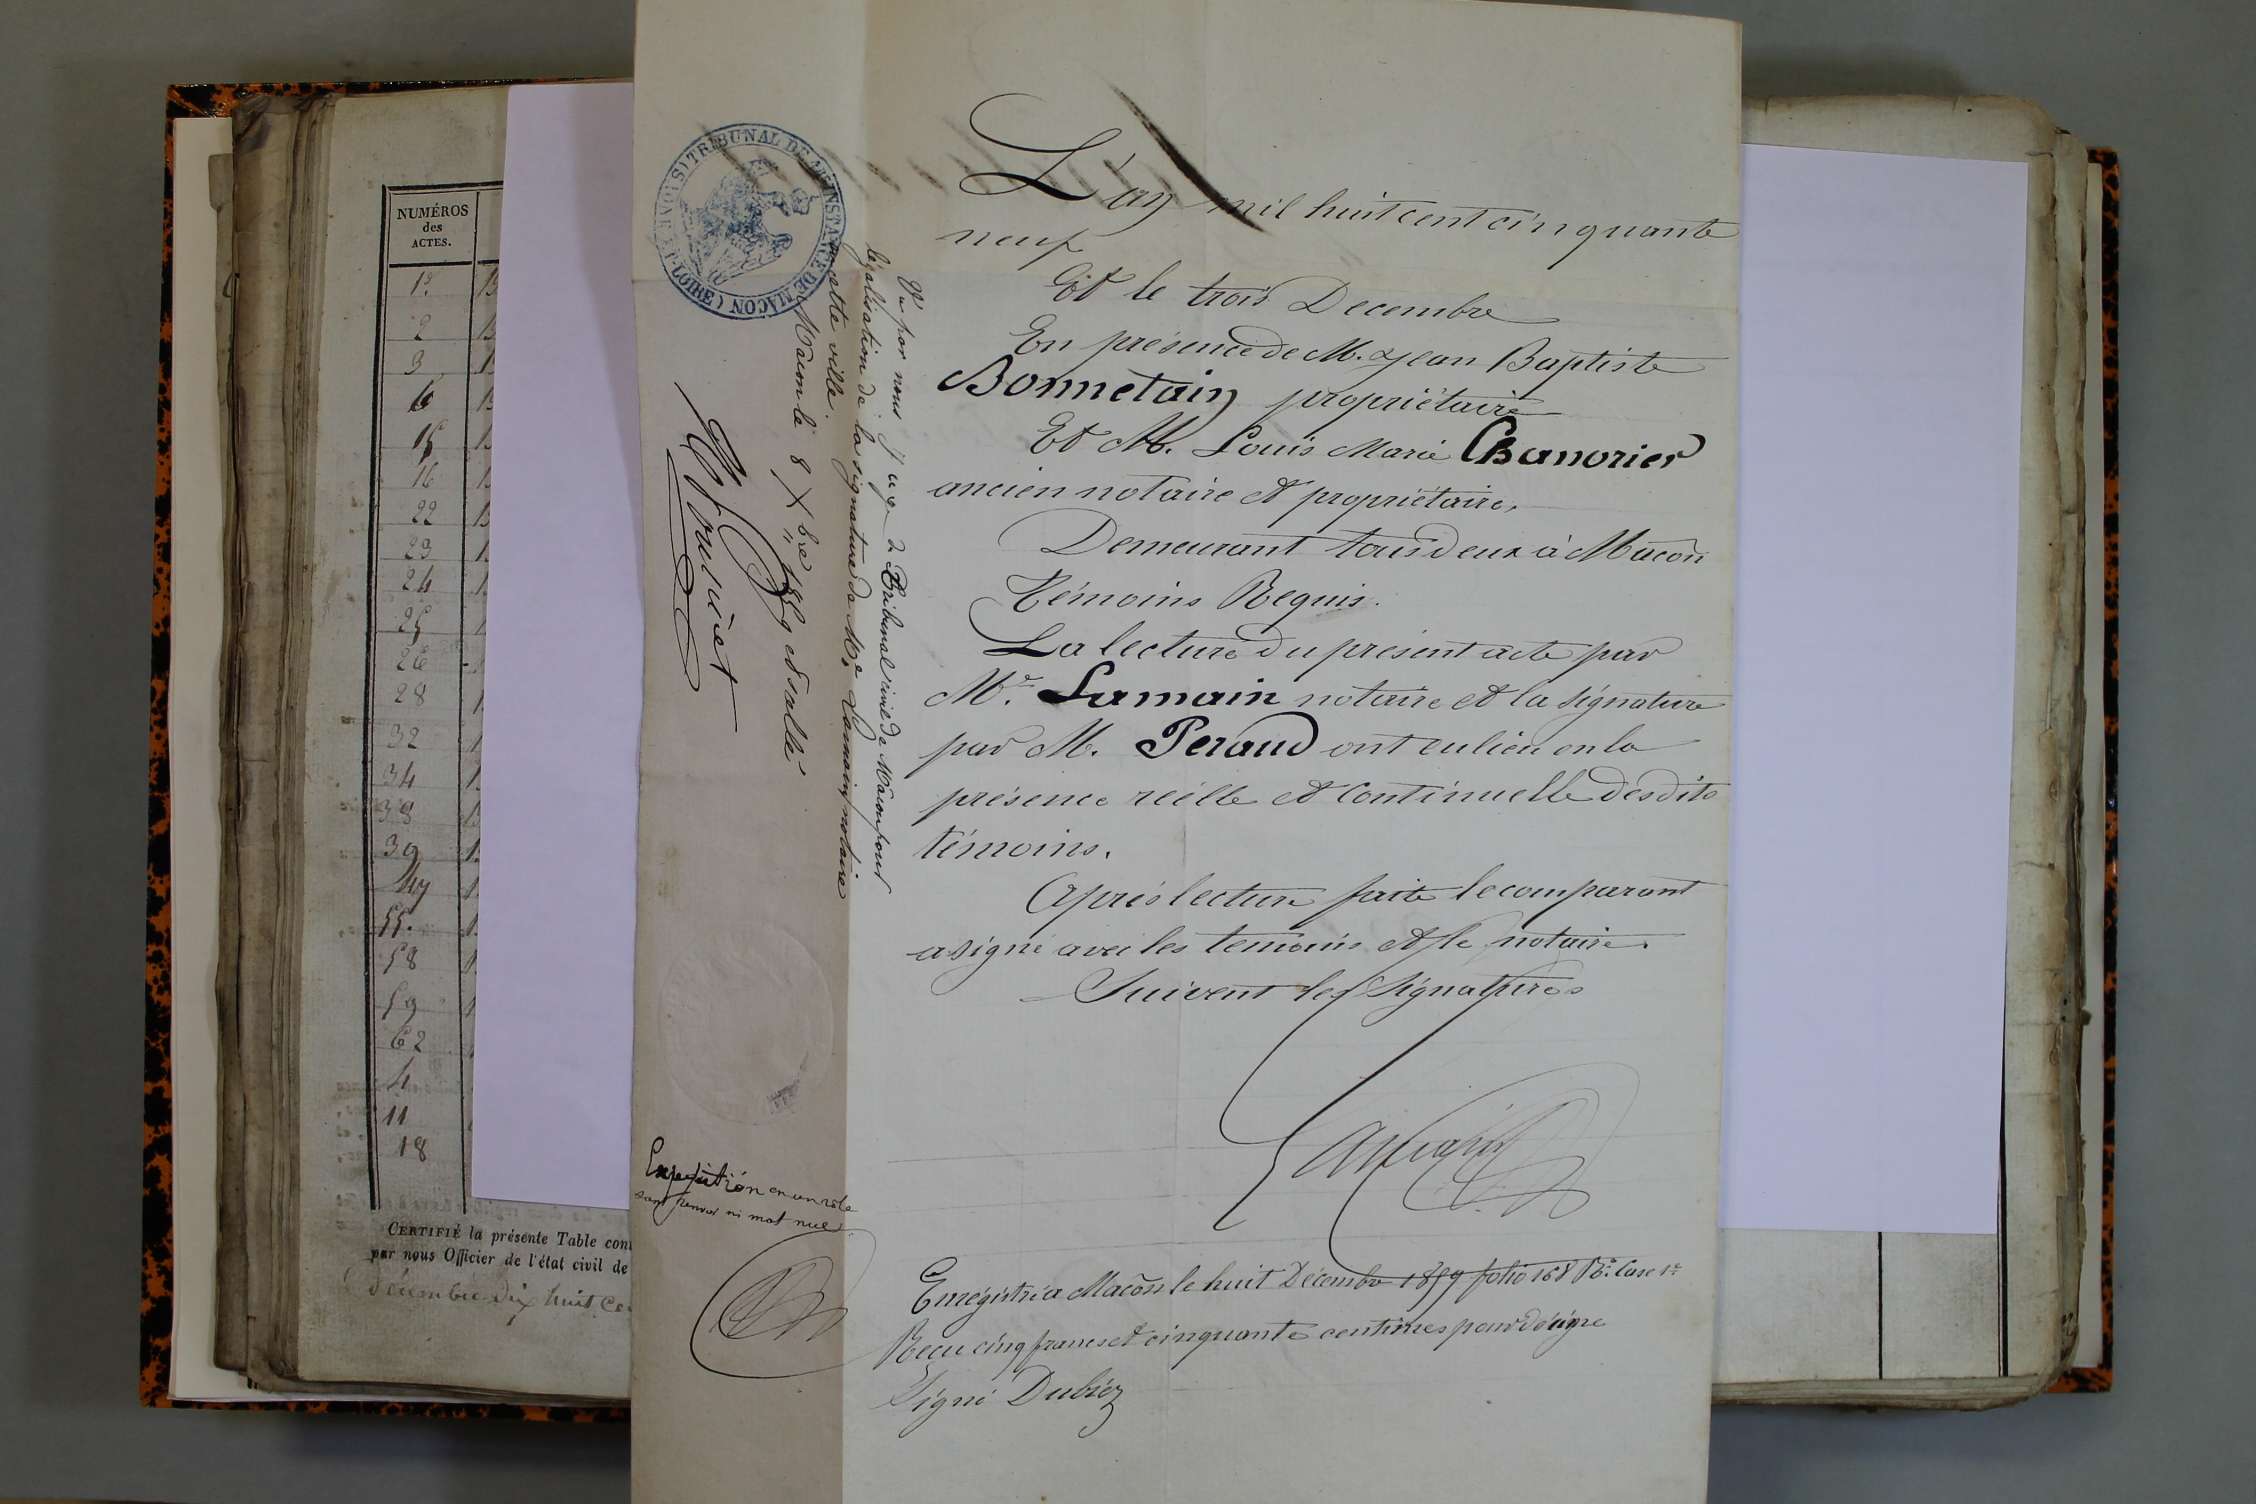 NUMÉROS
des
ACTES.
1er
2
3
6
15
16
22
23
24
25
26
28
32
34
38
39
55.
58
59
62
4
11
18
CERTIFIÉ la présente Table
par nous Officier de l'état civil de
décembre dix huit
TRIBUNAL DE 1ERE INSTANCE DE MACON
Vu par nous Juge au Tribunal civil de Macon pour
légalisation de la signature de Me Lamain notaire
en cette ville.
Macon le 8 Xbre 1859
Expédition en un rôle
sans renvoi ni mot nul
L'an mil huit cent cinquante
neuf
Et le trois Decembre
En présence de M. Jean Baptiste
Bonnetain propriétaire
Et M. Louis Marie Chanorier
ancien notaire et propriétaire,
Demeurant tous deux à Macôn
Témoins Requis.
La lecture du présent acte par
Me. Lamain notaire et la signature
par M. Peraud ont eu lieu en la
présence réelle et continuelle desdits
témoins.
Après lecture faite le comparant
a signé avec les temoins et le notaire.
Suivent les Signatures
Lamain
Enregistré à Macôn le huit Décembre 1859 folio 168 Ro. Case 1re
Recu cinq francs et cinquante centimes pour décime
Signé Dubiez